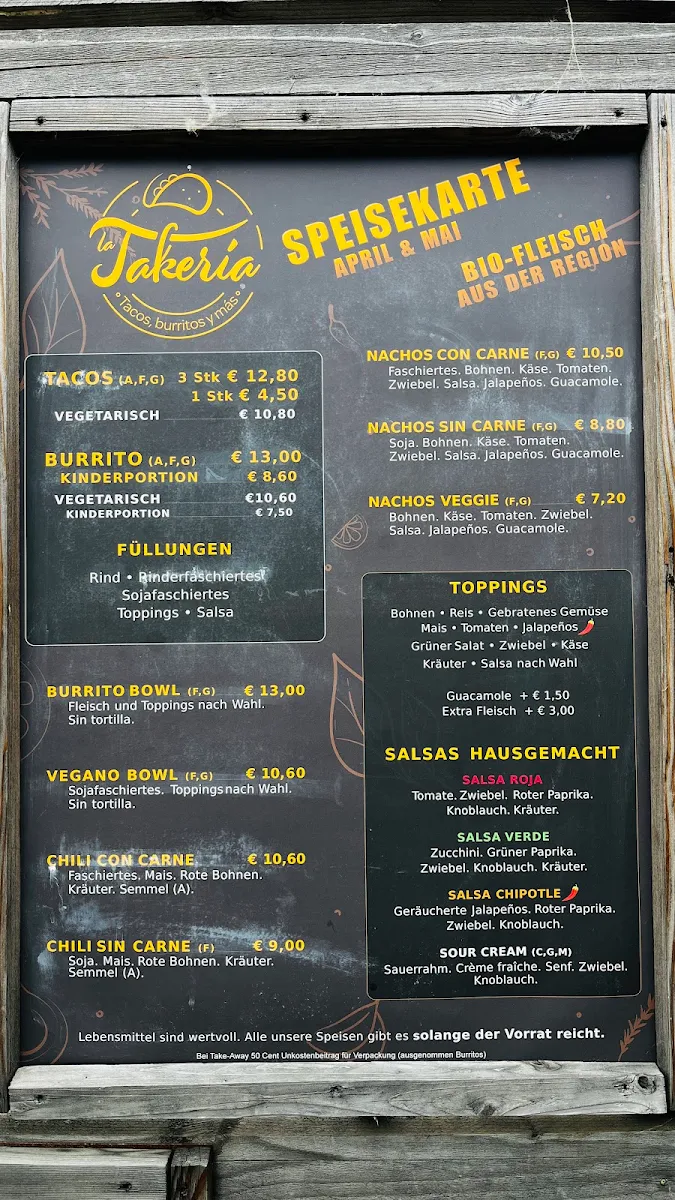 la Takería
Tacos, burritos y más
SPEISEKARTE
APRIL & MAI
BIO-FLEISCH
AUS DER REGION
TACOS (A,F,G) 3 Stk € 12,80
1 Stk € 4,50
VEGETARISCH € 10,80
BURRITO (A,F,G) € 13,00
KINDERPORTION € 8,60
VEGETARISCH €10,60
KINDERPORTION € 7,50
FÜLLUNGEN
Rind • Rinderfaschiertes
Sojafaschiertes
Toppings • Salsa
BURRITO BOWL (F,G) € 13,00
Fleisch und Toppings nach Wahl.
Sin tortilla.
VEGANO BOWL (F,G) € 10,60
Sojafaschiertes. Toppings nach Wahl.
Sin tortilla.
CHILI CON CARNE € 10,60
Faschiertes. Mais. Rote Bohnen.
Kräuter. Semmel (A).
CHILI SIN CARNE (F) € 9,00
Soja. Mais. Rote Bohnen. Kräuter.
Semmel (A).
NACHOS CON CARNE (F,G) € 10,50
Faschiertes. Bohnen. Käse. Tomaten.
Zwiebel. Salsa. Jalapeños. Guacamole.
NACHOS SIN CARNE (F,G) € 8,80
Soja. Bohnen. Käse. Tomaten.
Zwiebel. Salsa. Jalapeños. Guacamole.
NACHOS VEGGIE (F,G) € 7,20
Bohnen. Käse. Tomaten. Zwiebel.
Salsa. Jalapeños. Guacamole.
TOPPINGS
Bohnen • Reis • Gebratenes Gemüse
Mais • Tomaten • Jalapeños
Grüner Salat • Zwiebel • Käse
Kräuter • Salsa nach Wahl
Guacamole + € 1,50
Extra Fleisch + € 3,00
SALSAS HAUSGEMACHT
SALSA ROJA
Tomate. Zwiebel. Roter Paprika.
Knoblauch. Kräuter.
SALSA VERDE
Zucchini. Grüner Paprika.
Zwiebel. Knoblauch. Kräuter.
SALSA CHIPOTLE
Geräucherte Jalapeños. Roter Paprika.
Zwiebel. Knoblauch.
SOUR CREAM (C,G,M)
Sauerrahm. Crème fraîche. Senf. Zwiebel.
Knoblauch.
Lebensmittel sind wertvoll. Alle unsere Speisen gibt es solange der Vorrat reicht.
Bei Take-Away 50 Cent Unkostenbeitrag für Verpackung (ausgenommen Burritos)